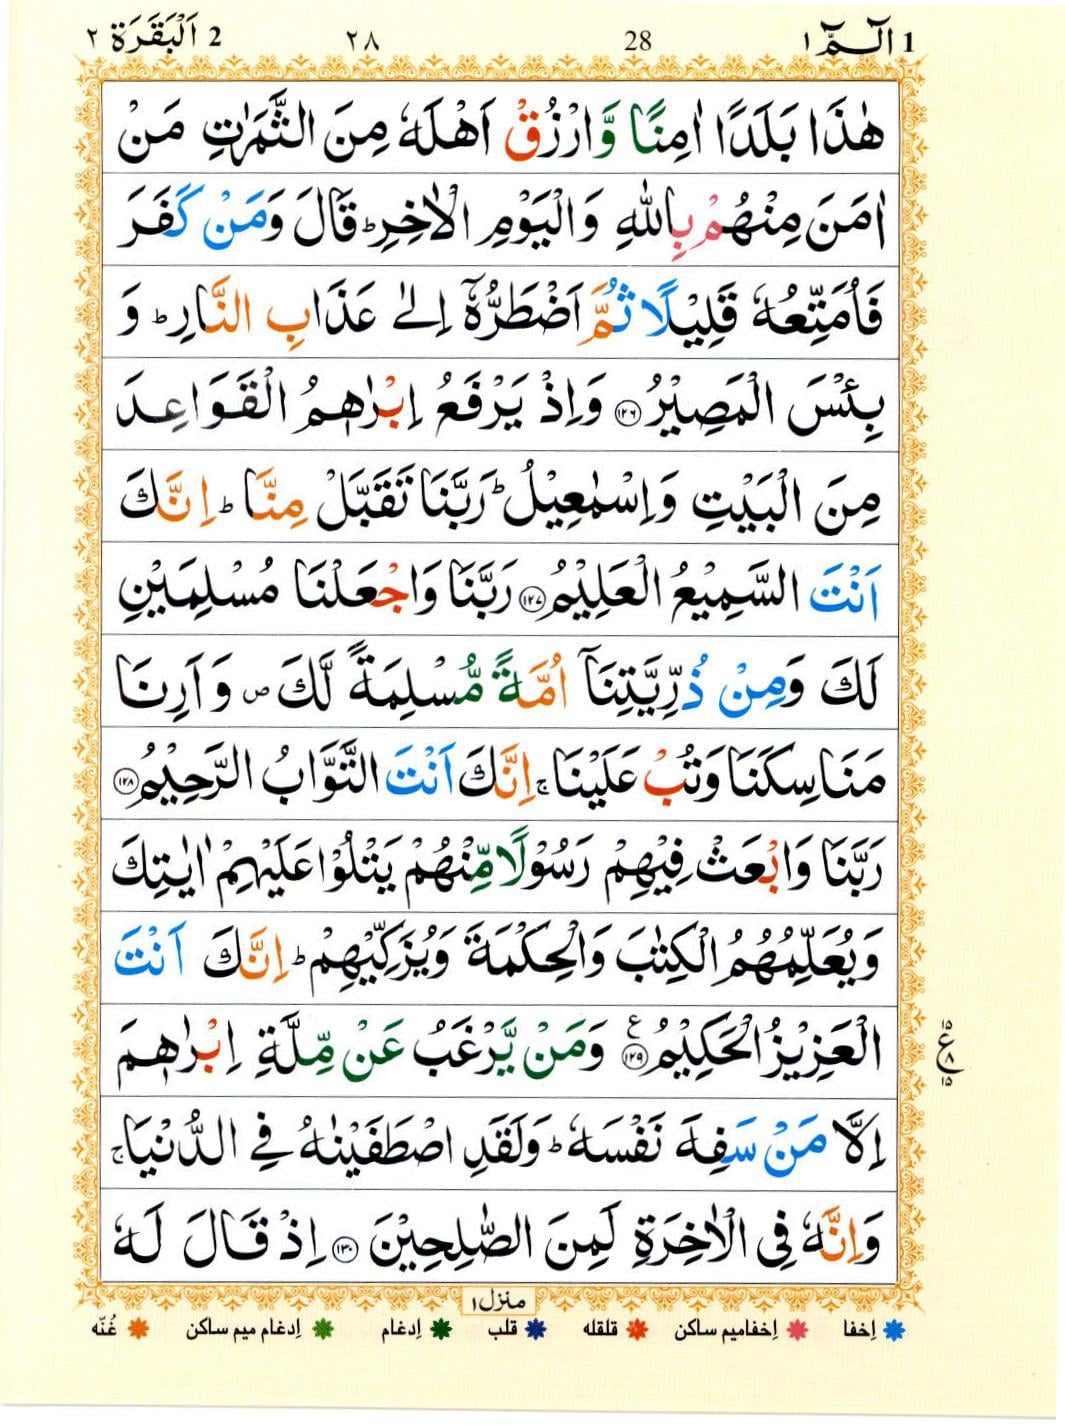 2 اَلْبَقَرَة ٢ ٢٨ 28 الٓـمّٓ ١ 1
هٰذَا بَلَدًا اٰمِنًا وَّارْزُقْ اَهْلَهٗ مِنَ الثَّمَرٰتِ مَنْ
اٰمَنَ مِنْهُمْ بِاللّٰهِ وَالْيَوْمِ الْاٰخِرِ ؕ قَالَ وَمَنْ كَفَرَ
فَاُمَتِّعُهٗ قَلِيْلًا ثُمَّ اَضْطَرُّهٗۤ اِلٰى عَذَابِ النَّارِ ؕ وَ
بِئْسَ الْمَصِيْرُ ﴿١٢٦﴾ وَاِذْ يَرْفَعُ اِبْرٰهٖمُ الْقَوَاعِدَ
مِنَ الْبَيْتِ وَاِسْمٰعِيْلُ ؕ رَبَّنَا تَقَبَّلْ مِنَّا ؕ اِنَّكَ
اَنْتَ السَّمِيْعُ الْعَلِيْمُ ﴿١٢٧﴾ رَبَّنَا وَاجْعَلْنَا مُسْلِمَيْنِ
لَكَ وَمِنْ ذُرِّيَّتِنَاۤ اُمَّةً مُّسْلِمَةً لَّكَ ۪ وَاَرِنَا
مَنَاسِكَنَا وَتُبْ عَلَيْنَا ۚ اِنَّكَ اَنْتَ التَّوَّابُ الرَّحِيْمُ ﴿١٢٨﴾
رَبَّنَا وَابْعَثْ فِيْهِمْ رَسُوْلًا مِّنْهُمْ يَتْلُوْا عَلَيْهِمْ اٰيٰتِكَ
وَيُعَلِّمُهُمُ الْكِتٰبَ وَالْحِكْمَةَ وَيُزَكِّيْهِمْ ؕ اِنَّكَ اَنْتَ
الْعَزِيْزُ الْحَكِيْمُ ﴿١٢٩﴾ ع وَمَنْ يَّرْغَبُ عَنْ مِّلَّةِ اِبْرٰهٖمَ
١٥ ع ٨ ١٥
اِلَّا مَنْ سَفِهَ نَفْسَهٗ ؕ وَلَقَدِ اصْطَفَيْنٰهُ فِى الدُّنْيَا ۚ
وَاِنَّهٗ فِى الْاٰخِرَةِ لَمِنَ الصّٰلِحِيْنَ ﴿١٣٠﴾ اِذْ قَالَ لَهٗ
منزل ١
اِخفا اِخفامیم ساکن قلقله قلب اِدغام اِدغام میم ساکن غُنّه